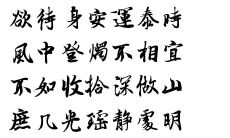 欲待身安運泰時
風中登燭不相宜
不如收拾深傚山
庶几光瑶静處明